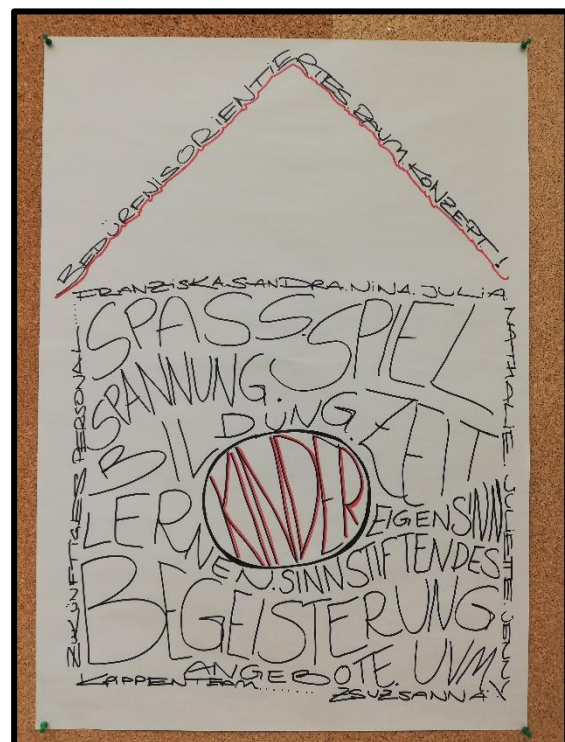 BEDÜRFNISORIENTIERTES RAUM.KONZEPT!
FRANZISKA.SANDRA.NINA.JULIA.
NATHALIE. JULIETTE JENNY
ZUKÜNFTIGES PERSONAL
SPASS.SPIEL
SPANNUNG.
BILDUNG.ZEIT
KINDER
LERNEN.
EIGENSINN
SINNSTIFTENDES
BEGEISTERUNG
ANGEBOTE. UVM
KAPPENTEAM........
ZSUZSANNA